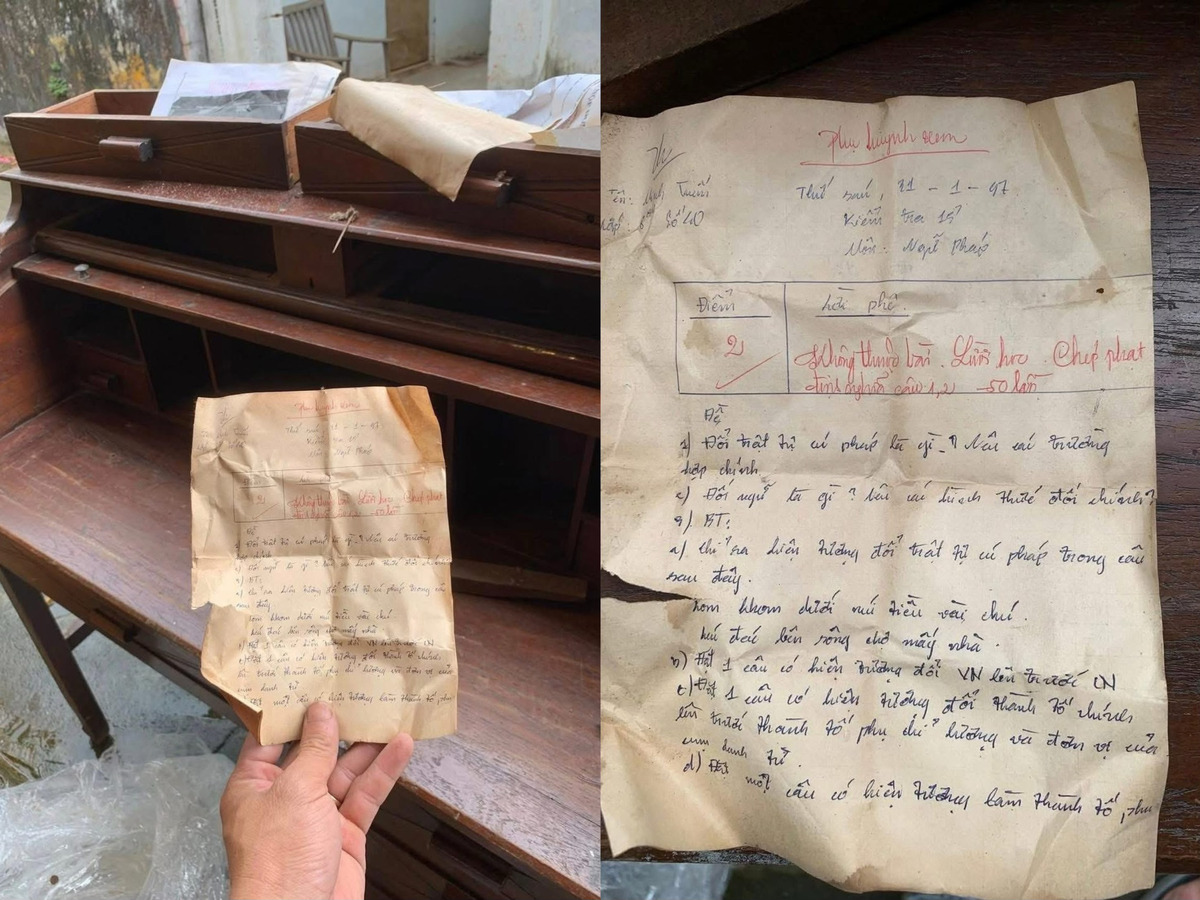 Phụ huynh xem
Tên: Minh Tuấn
Thứ sáu, 31 - 1 - 97
Lớp: 8 Số 40
Kiểm tra 15'
Môn: Ngữ Pháp
Điểm
Lời phê.
2
Không thuộc bài. Lười học. Chép phạt
định nghĩa câu 1, 2 50 lần
Đề
1) Đổi trật tự cú pháp là gì? Nêu các trường
hợp chính
2) Đối ngữ là gì? Nêu các hình thức đối chính?
3) BT:
a) chỉ ra hiện tượng đổi trật tự cú pháp trong câu
sau đây.
Lom khom dưới núi tiều vài chú.
Lác đác bên sông chợ mấy nhà.
b) Đặt 1 câu có hiện tượng đổi VN lên trước CN
c) Đặt 1 câu có hiện tượng đổi thành tố chính
lên trước thành tố phụ chỉ lượng và đơn vị của
cụm danh từ.
d) Đặt một câu có hiện tượng làm thành tố, phụ